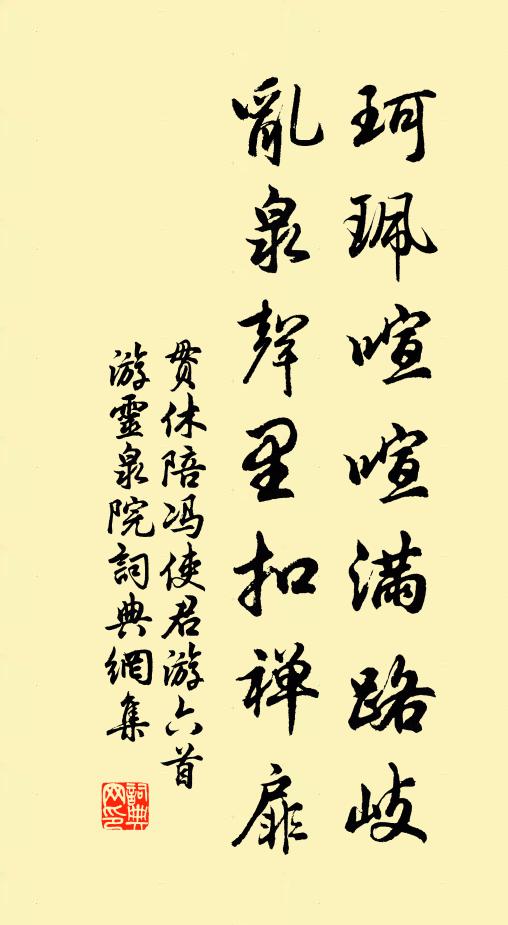 珂珮喧喧滿路歧
亂泉聲里扣禪扉
贯休陪冯使君游六首
游靈泉院詞典網集
詞典
网印